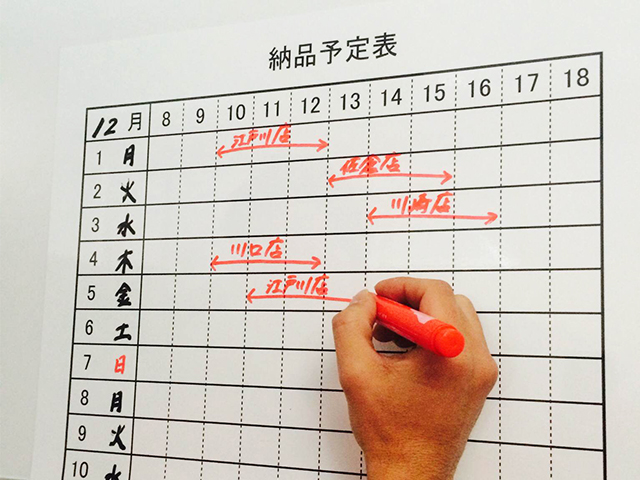 納品予定表
12月 8 9 10 11 12 13 14 15 16 17 18
1 月 江戸川店
2 火 佐倉店
3 水 川崎店
4 木 川口店
5 金 江戸川店
6 土
7 日
8 月
9 火
10 水